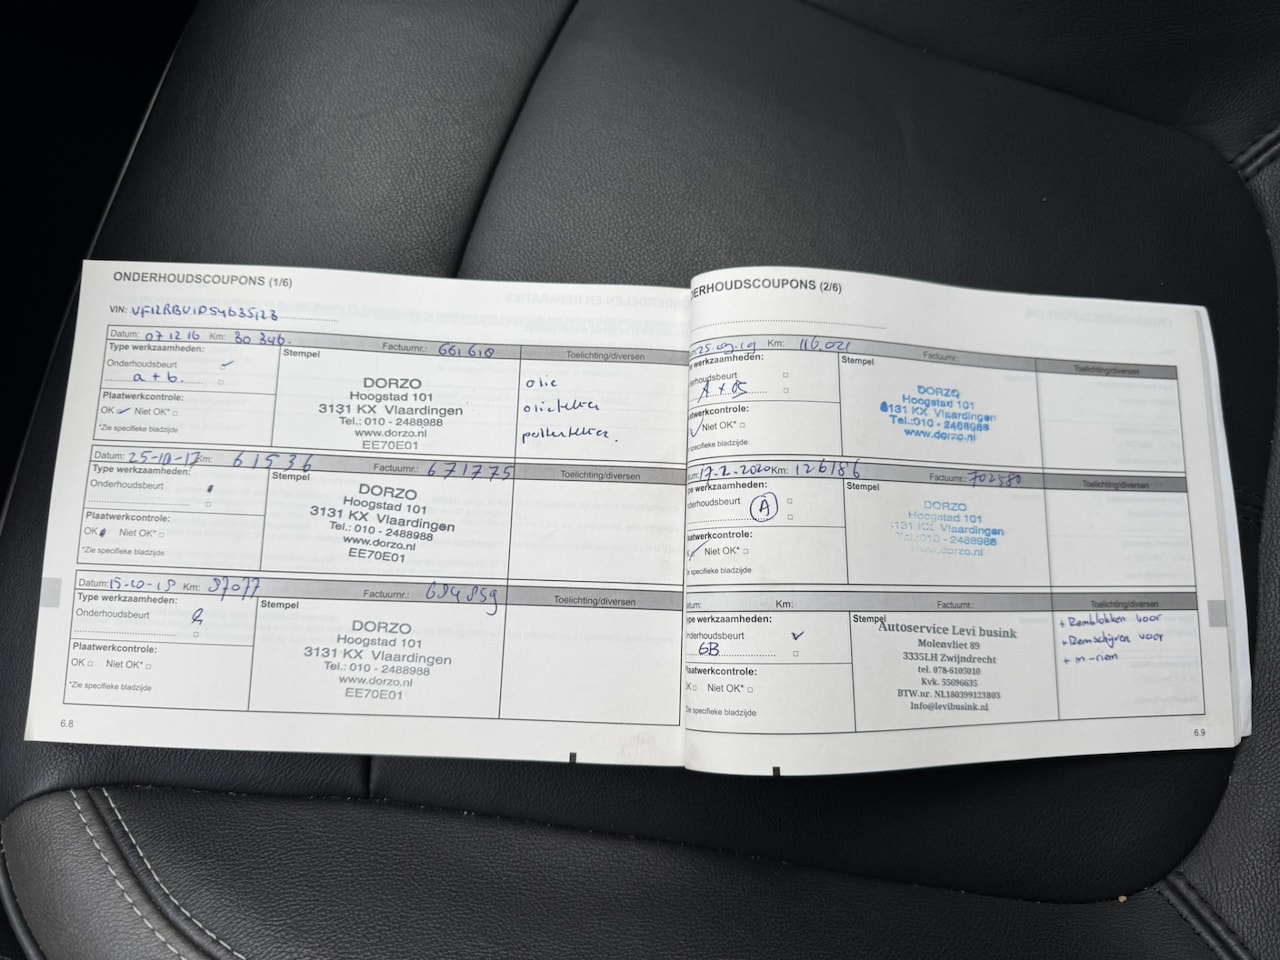 ONDERHOUDSCOUPONS (1/6)
VIN: VF12RBU1D54635123
Datum: 07 12 16 Km: 30 346. Factuurnr.: 661610 Toelichting/diversen
Type werkzaamheden:
Onderhoudsbeurt
a + b.
Plaatwerkcontrole:
OK Niet OK*
*Zie specifieke bladzijde
Stempel
DORZO
Hoogstad 101
3131 KX Vlaardingen
Tel.: 010 - 2488988
www.dorzo.nl
EE70E01
olie
oliefilter
pollenfilter.
25-10-17 Km: 61536 Factuurnr.: 671775 Toelichting/diversen
Type werkzaamheden:
Onderhoudsbeurt
Plaatwerkcontrole:
OK Niet OK*
*Zie specifieke bladzijde
Stempel
DORZO
Hoogstad 101
3131 KX Vlaardingen
Tel.: 010 - 2488988
www.dorzo.nl
EE70E01
Datum: 15-10-18 Km: 97077 Factuurnr.: 684859 Toelichting/diversen
Type werkzaamheden:
Onderhoudsbeurt
Plaatwerkcontrole:
OK Niet OK*
*Zie specifieke bladzijde
Stempel
DORZO
Hoogstad 101
3131 KX Vlaardingen
Tel.: 010 - 2488988
www.dorzo.nl
EE70E01
6.8
DERHOUDSCOUPONS (2/6)
25.09.19 Km: 116.021 Factuurnr.: Toelichting/diversen
e werkzaamheden:
derhoudsbeurt
A +
aatwerkcontrole:
Niet OK*
specifieke bladzijde
Stempel
DORZO
Hoogstad 101
3131 KX Vlaardingen
Tel.: 010 - 2488988
www.dorzo.nl
um: 17.2.2020 Km: 126186 Factuurnr.: 702580 Toelichting/diversen
pe werkzaamheden:
nderhoudsbeurt
A
aatwerkcontrole:
Niet OK*
e specifieke bladzijde
Stempel
DORZO
Hoogstad 101
3131 KX Vlaardingen
Tel.: 010 - 2488988
www.dorzo.nl
atum: Km: Factuurnr.: Toelichting/diversen
ype werkzaamheden:
nderhoudsbeurt
GB
laatwerkcontrole:
K Niet OK*
Zie specifieke bladzijde
Stempel
Autoservice Levi busink
Molenvliet 89
3335LH Zwijndrecht
tel. 078-6105010
Kvk. 55096635
BTW.nr. NL180399123B03
Info@levibusink.nl
+ Remblokken voor
+ Remschijven voor
+ m-riem
6.9